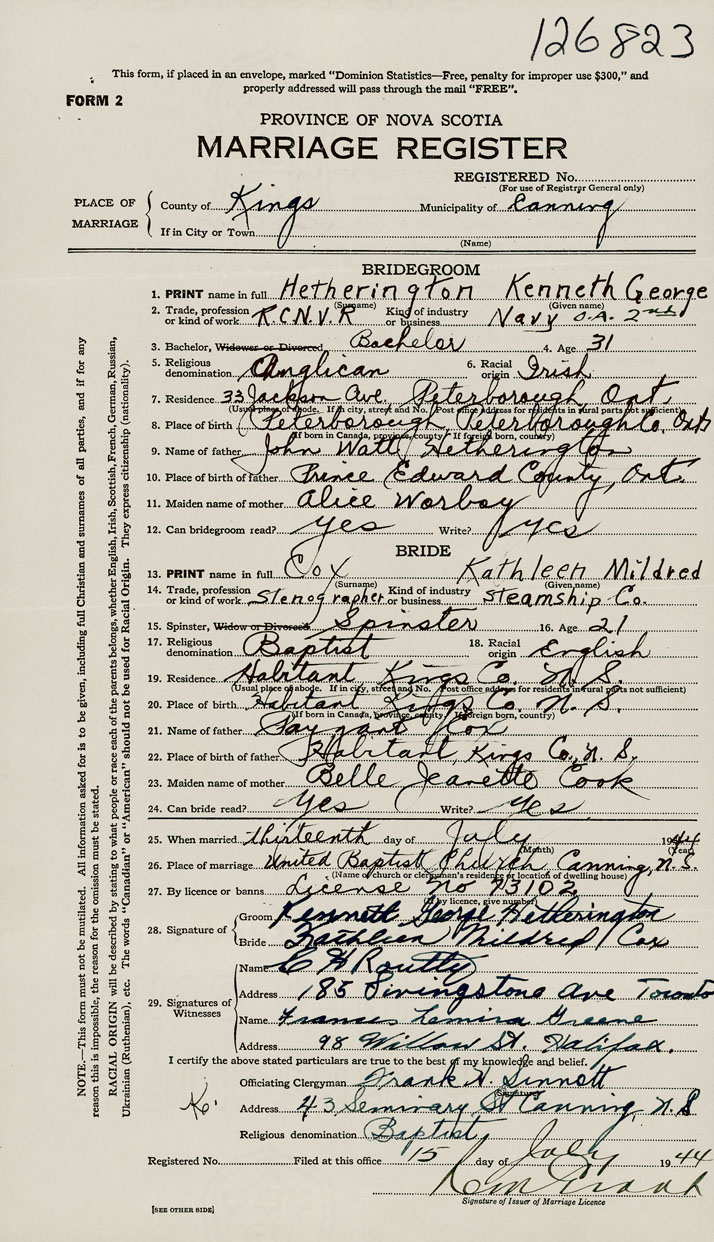 126823
This form, if placed in an envelope, marked "Dominion Statistics—Free, penalty for improper use $300," and
properly addressed will pass through the mail "FREE".
FORM 2
PROVINCE OF NOVA SCOTIA
MARRIAGE REGISTER
REGISTERED No.
(For use of Registrar General only)
PLACE OF MARRIAGE
County of Kings Municipality of Canning
If in City or Town
(Name)
BRIDEGROOM
1. PRINT name in full Hetherington Kenneth George
(Surname) (Given name)
2. Trade, profession or kind of work R.C.N.V.R Kind of industry or business Navy O.A. 2nd
3. Bachelor, Widower or Divorced Bachelor 4. Age 31
5. Religious denomination Anglican 6. Racial origin Irish
7. Residence 33 Jackson Ave. Peterborough, Ont
(Usual place of abode. If in city, street and No. Post office address for residents in rural parts not sufficient)
8. Place of birth Peterborough, Peterborough Co. Ont
(If born in Canada, province, county If foreign born, country)
9. Name of father John Watt Hetherington
10. Place of birth of father Prince Edward County, Ont.
11. Maiden name of mother Alice Worboy
12. Can bridegroom read? yes Write? yes
BRIDE
13. PRINT name in full Cox Kathleen Mildred
(Surname) (Given name)
14. Trade, profession or kind of work Stenographer Kind of industry or business Steamship Co.
15. Spinster, Widow or Divorced Spinster 16. Age 21
17. Religious denomination Baptist 18. Racial origin English
19. Residence Habitant Kings Co. N.S.
(Usual place of abode. If in city, street and No. Post office address for residents in rural parts not sufficient)
20. Place of birth Habitant Kings Co. N.S.
(If born in Canada, province, county If foreign born, country)
21. Name of father Cox
22. Place of birth of father Habitant, Kings Co, N.S.
23. Maiden name of mother Belle Jeanette Cook
24. Can bride read? Yes Write? Yes
25. When married thirteenth day of July 1944
(Month) (Year)
26. Place of marriage United Baptist Church, Canning, N.S.
(Name of church or clergyman's residence or location of dwelling house)
27. By licence or banns License no 73102
(If by licence, give number)
28. Signature of
Groom Kenneth George Hetherington
Bride Kathleen Mildred Cox
29. Signatures of Witnesses
Name C H Routly
Address 185 Livingstone Ave Toronto
Name Frances Greene
Address 98 Willow St. Halifax.
I certify the above stated particulars are true to the best of my knowledge and belief.
Officiating Clergyman Frank H. Sinnott
(Signature)
Address 43 Seminary St Canning, N.S
Religious denomination Baptist
Registered No. Filed at this office 15 day of July 1944
Signature of Issuer of Marriage Licence
[SEE OTHER SIDE]
NOTE.—This form must not be mutilated. All information asked for is to be given, including full Christian and surnames of all parties, and if for any
reason this is impossible, the reason for the omission must be stated.
RACIAL ORIGIN will be described by stating to what people or race each of the parents belongs, whether English, Irish, Scottish, French, German, Russian,
Ukrainian (Ruthenian), etc. The words "Canadian" or "American" should not be used for Racial Origin. They express citizenship (nationality).